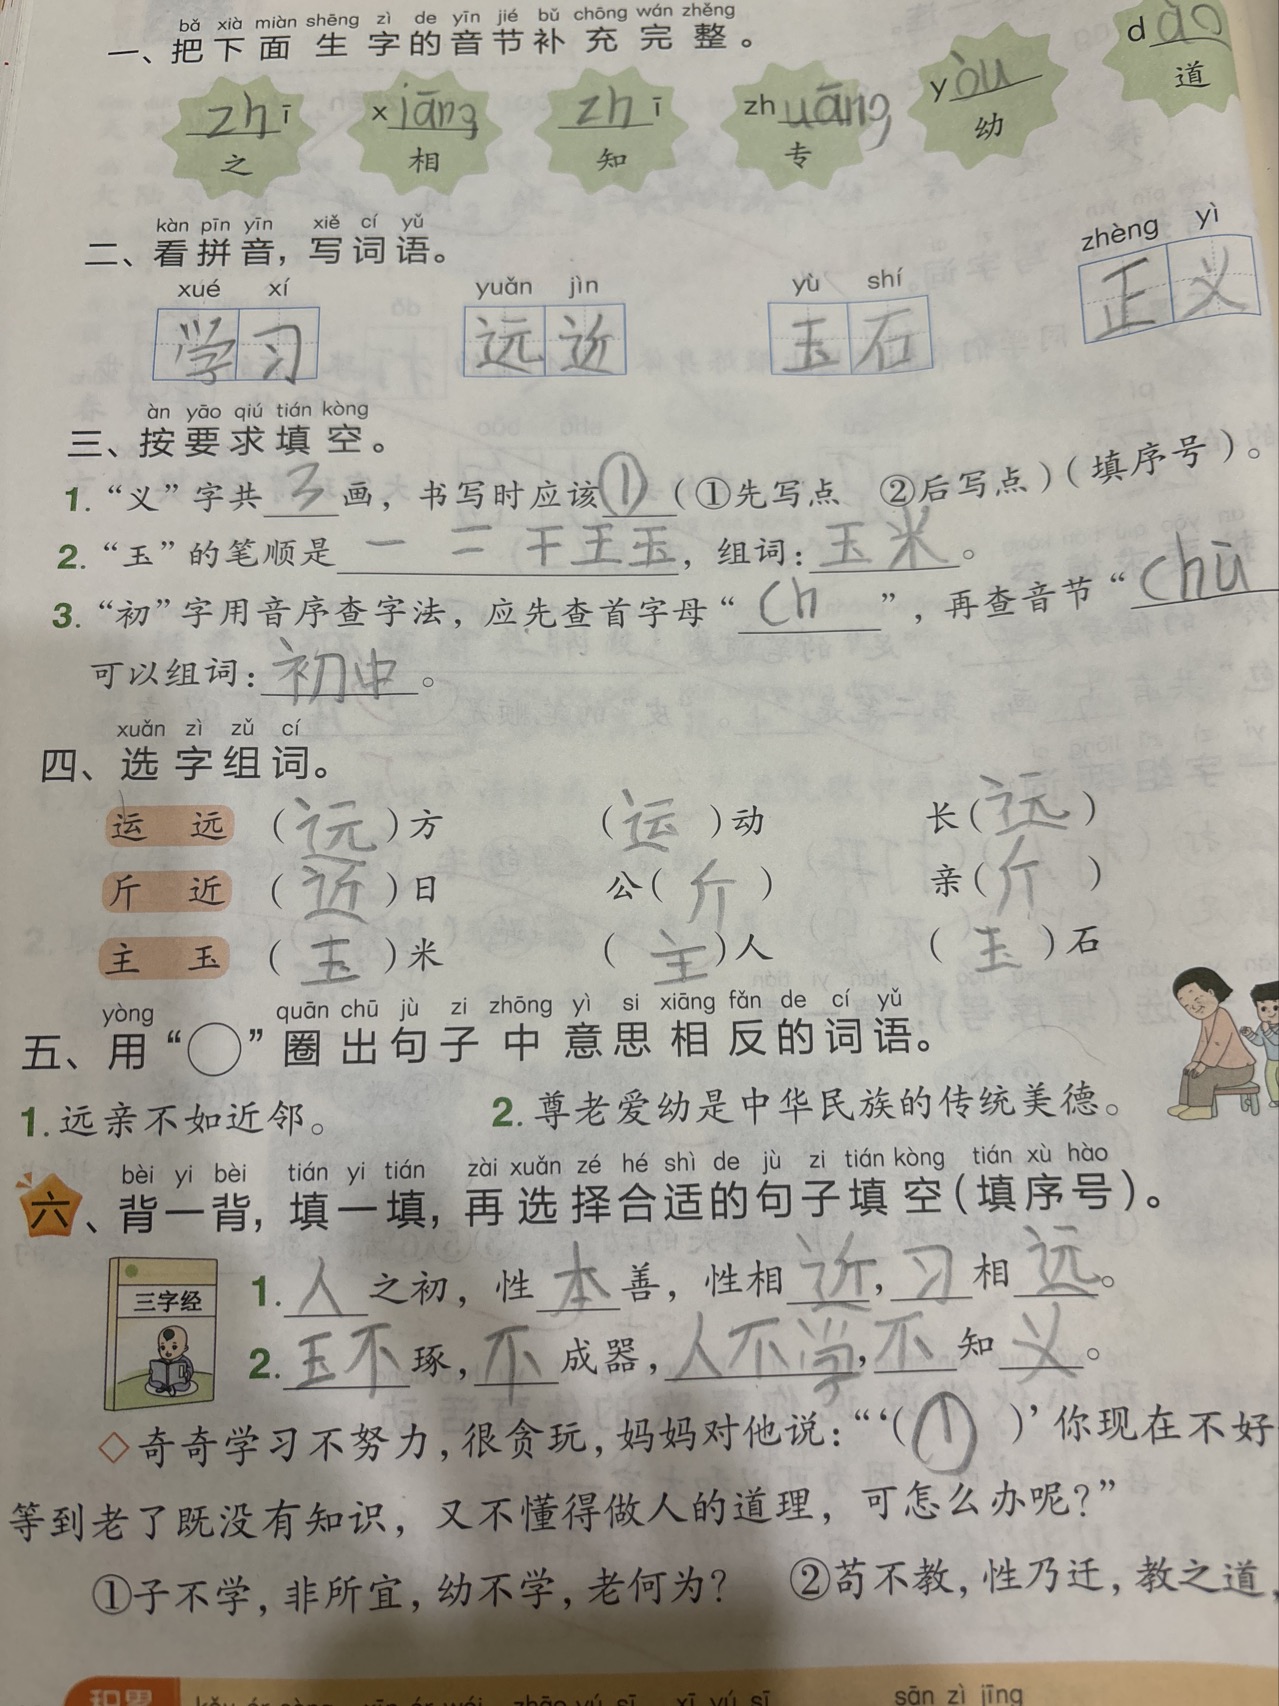 bǎ xià miàn shēng zì de yīn jié bǔ chōng wán zhěng
一、把下面生字的音节补充完整。
zhī xiāng zhī zhuāng yòu dào
之 相 知 专 幼 道
kàn pīn yīn xiě cí yǔ
二、看拼音，写词语。
xué xí yuǎn jìn yù shí zhèng yì
学习 远近 玉石 正义
àn yāo qiú tián kòng
三、按要求填空。
1.“义”字共3画，书写时应该①(①先写点 ②后写点)(填序号)。
2.“玉”的笔顺是一 二 干 王 玉，组词：玉米。
3.“初”字用音序查字法，应先查首字母“Ch”，再查音节“chū
可以组词：初中。
xuǎn zì zǔ cí
四、选字组词。
运 远 (远)方 (运)动 长(远)
斤 近 (近)日 公(斤) 亲(斤)
主 玉 (玉)米 (主)人 (玉)石
yòng quān chū jù zi zhōng yì si xiāng fǎn de cí yǔ
五、用“○”圈出句子中意思相反的词语。
1.远亲不如近邻。 2.尊老爱幼是中华民族的传统美德。
bèi yi bèi tián yi tián zài xuǎn zé hé shì de jù zi tián kòng tián xù hào
六、背一背，填一填，再选择合适的句子填空(填序号)。
三字经
1.人之初，性本善，性相近，习相远。
2.玉不琢，不成器，人不学，不知义。
◇奇奇学习不努力，很贪玩，妈妈对他说：“‘(①)’你现在不好
等到老了既没有知识，又不懂得做人的道理，可怎么办呢？”
①子不学，非所宜，幼不学，老何为？ ②苟不教，性乃迁，教之道，
积累
sān zì jīng